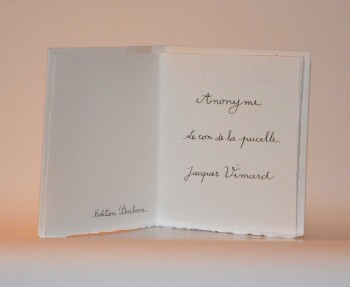 Edition Barbara
Anonyme
Le con de la pucelle
Jacques Vimard